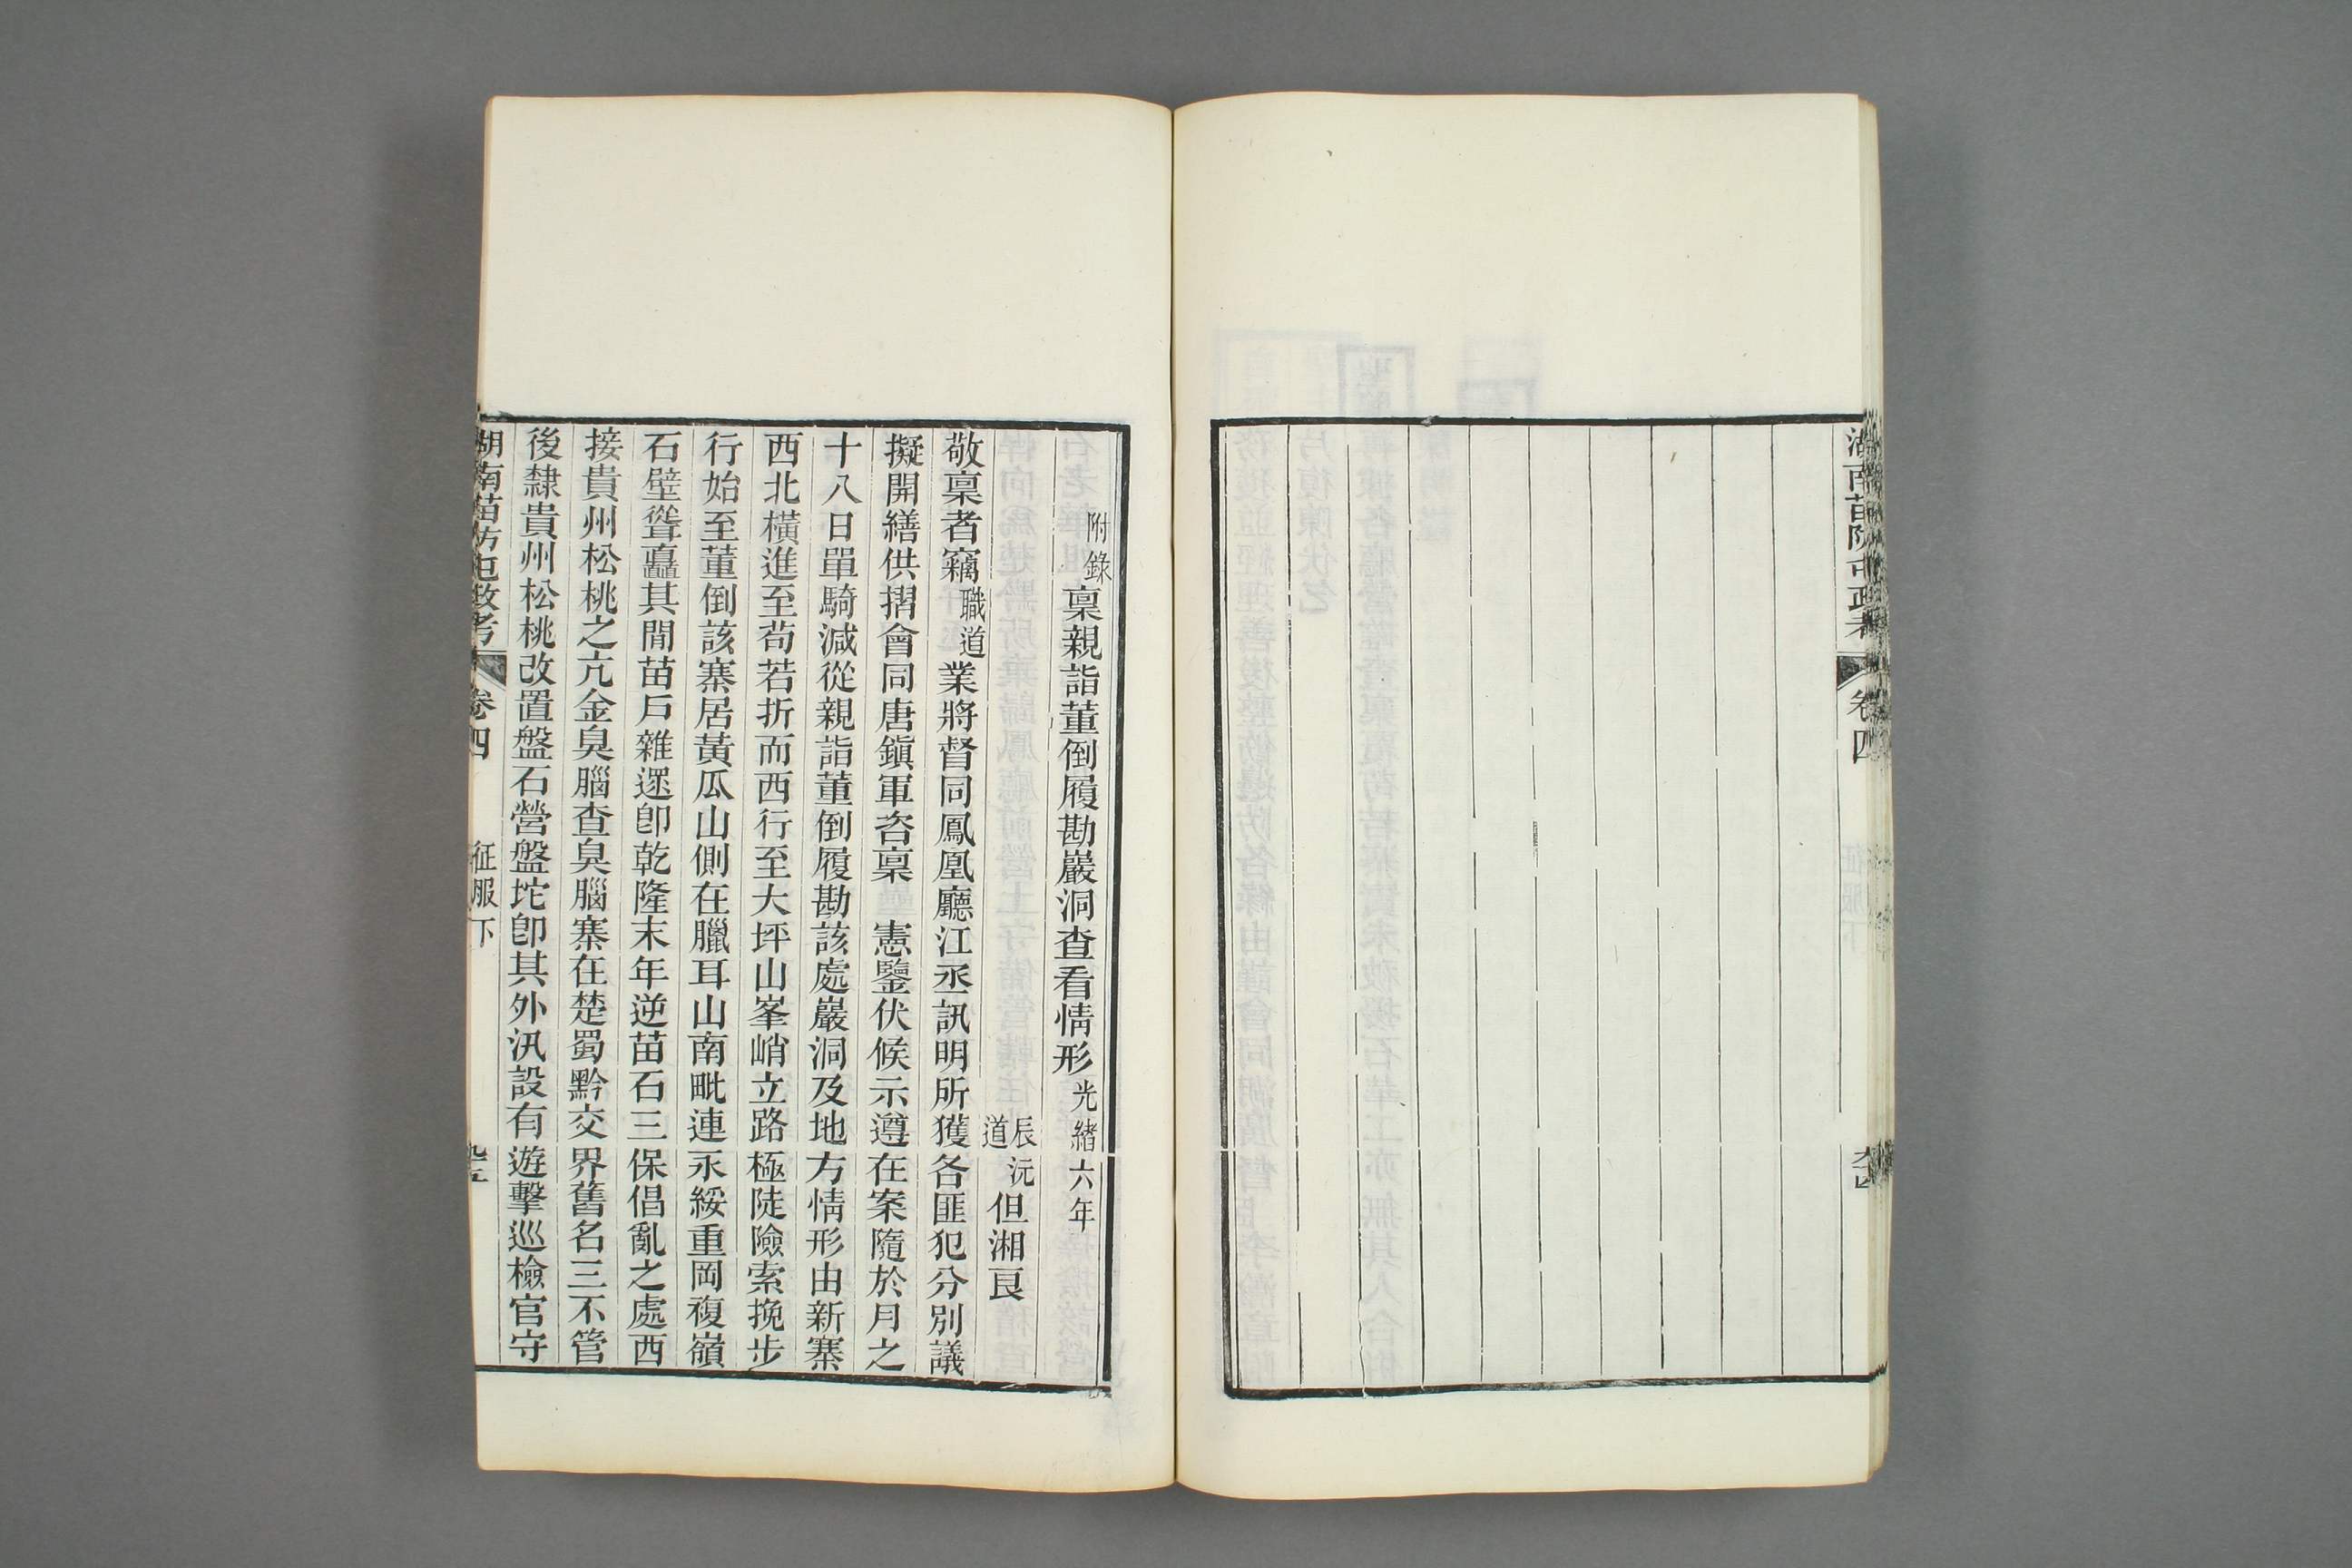 湖南苗防屯政考 卷四
附錄稟親詣董倒履勘巖洞查看情形光緒六年
辰沅道但湘良
敬稟者竊職道業將督同鳳凰廳江丞訊明所獲各匪犯分別議
擬開繕供摺會同唐鎭軍咨稟 憲鑒伏候示遵在案隨於月之
十八日單騎減從親詣董倒履勘該處巖洞及地方情形由新寨
西北橫進至茍若折而西行至大坪山峯峭立路極陡險索挽步
行始至董倒該寨居黃瓜山側在臘耳山南毗連永綏重岡複嶺
石壁聳矗其閒苗戶雜遝卽乾隆末年逆苗石三保倡亂之處西
接貴州松桃之亢金臭腦查臭腦寨在楚蜀黔交界舊名三不管
後隸貴州松桃改置盤石營盤坨卽其外汛設有遊擊巡檢官守
湖南苗防屯政考 卷四 征服下